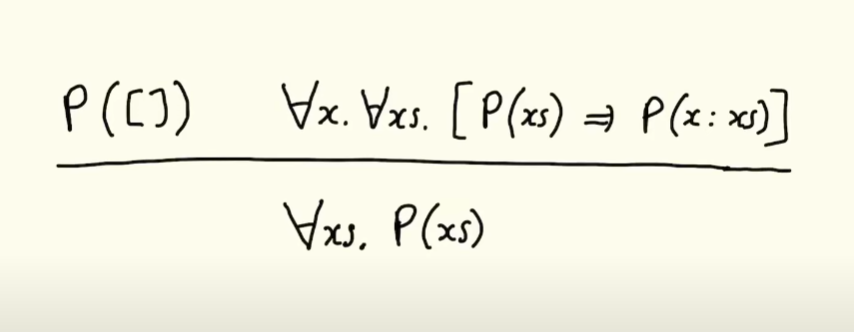 P([]) ∀x. ∀xs. [P(xs) ⇒ P(x : xs)]
∀xs. P(xs)